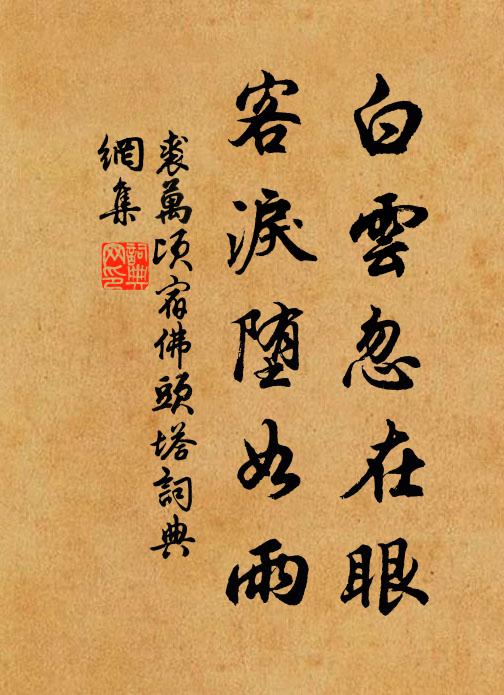 白雲忽在眼
客淚堕如雨
裘萬頃宿佛頭塔詞典
網集
詞典網印